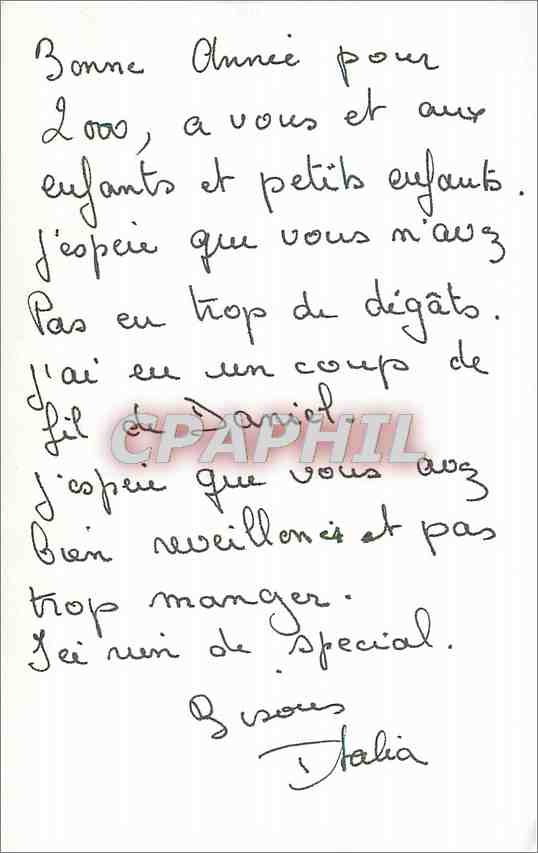 Bonne Année pour
2000, a vous et aux
enfants et petits enfants.
j'espère que vous n'avez
Pas eu trop de dégâts.
j'ai eu un coup de
fil de Daniel.
CPAPHIL
j'espère que vous avez
bien reveilloner et pas
trop manger.
Ici rien de special.
Bisous